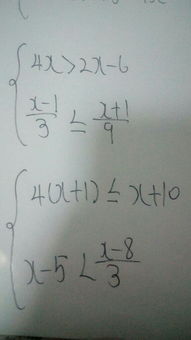 4x>2x-6
x-1/3 ≤ x+1/9
4(x+1) ≤ x+10
x-5 < x-8/3